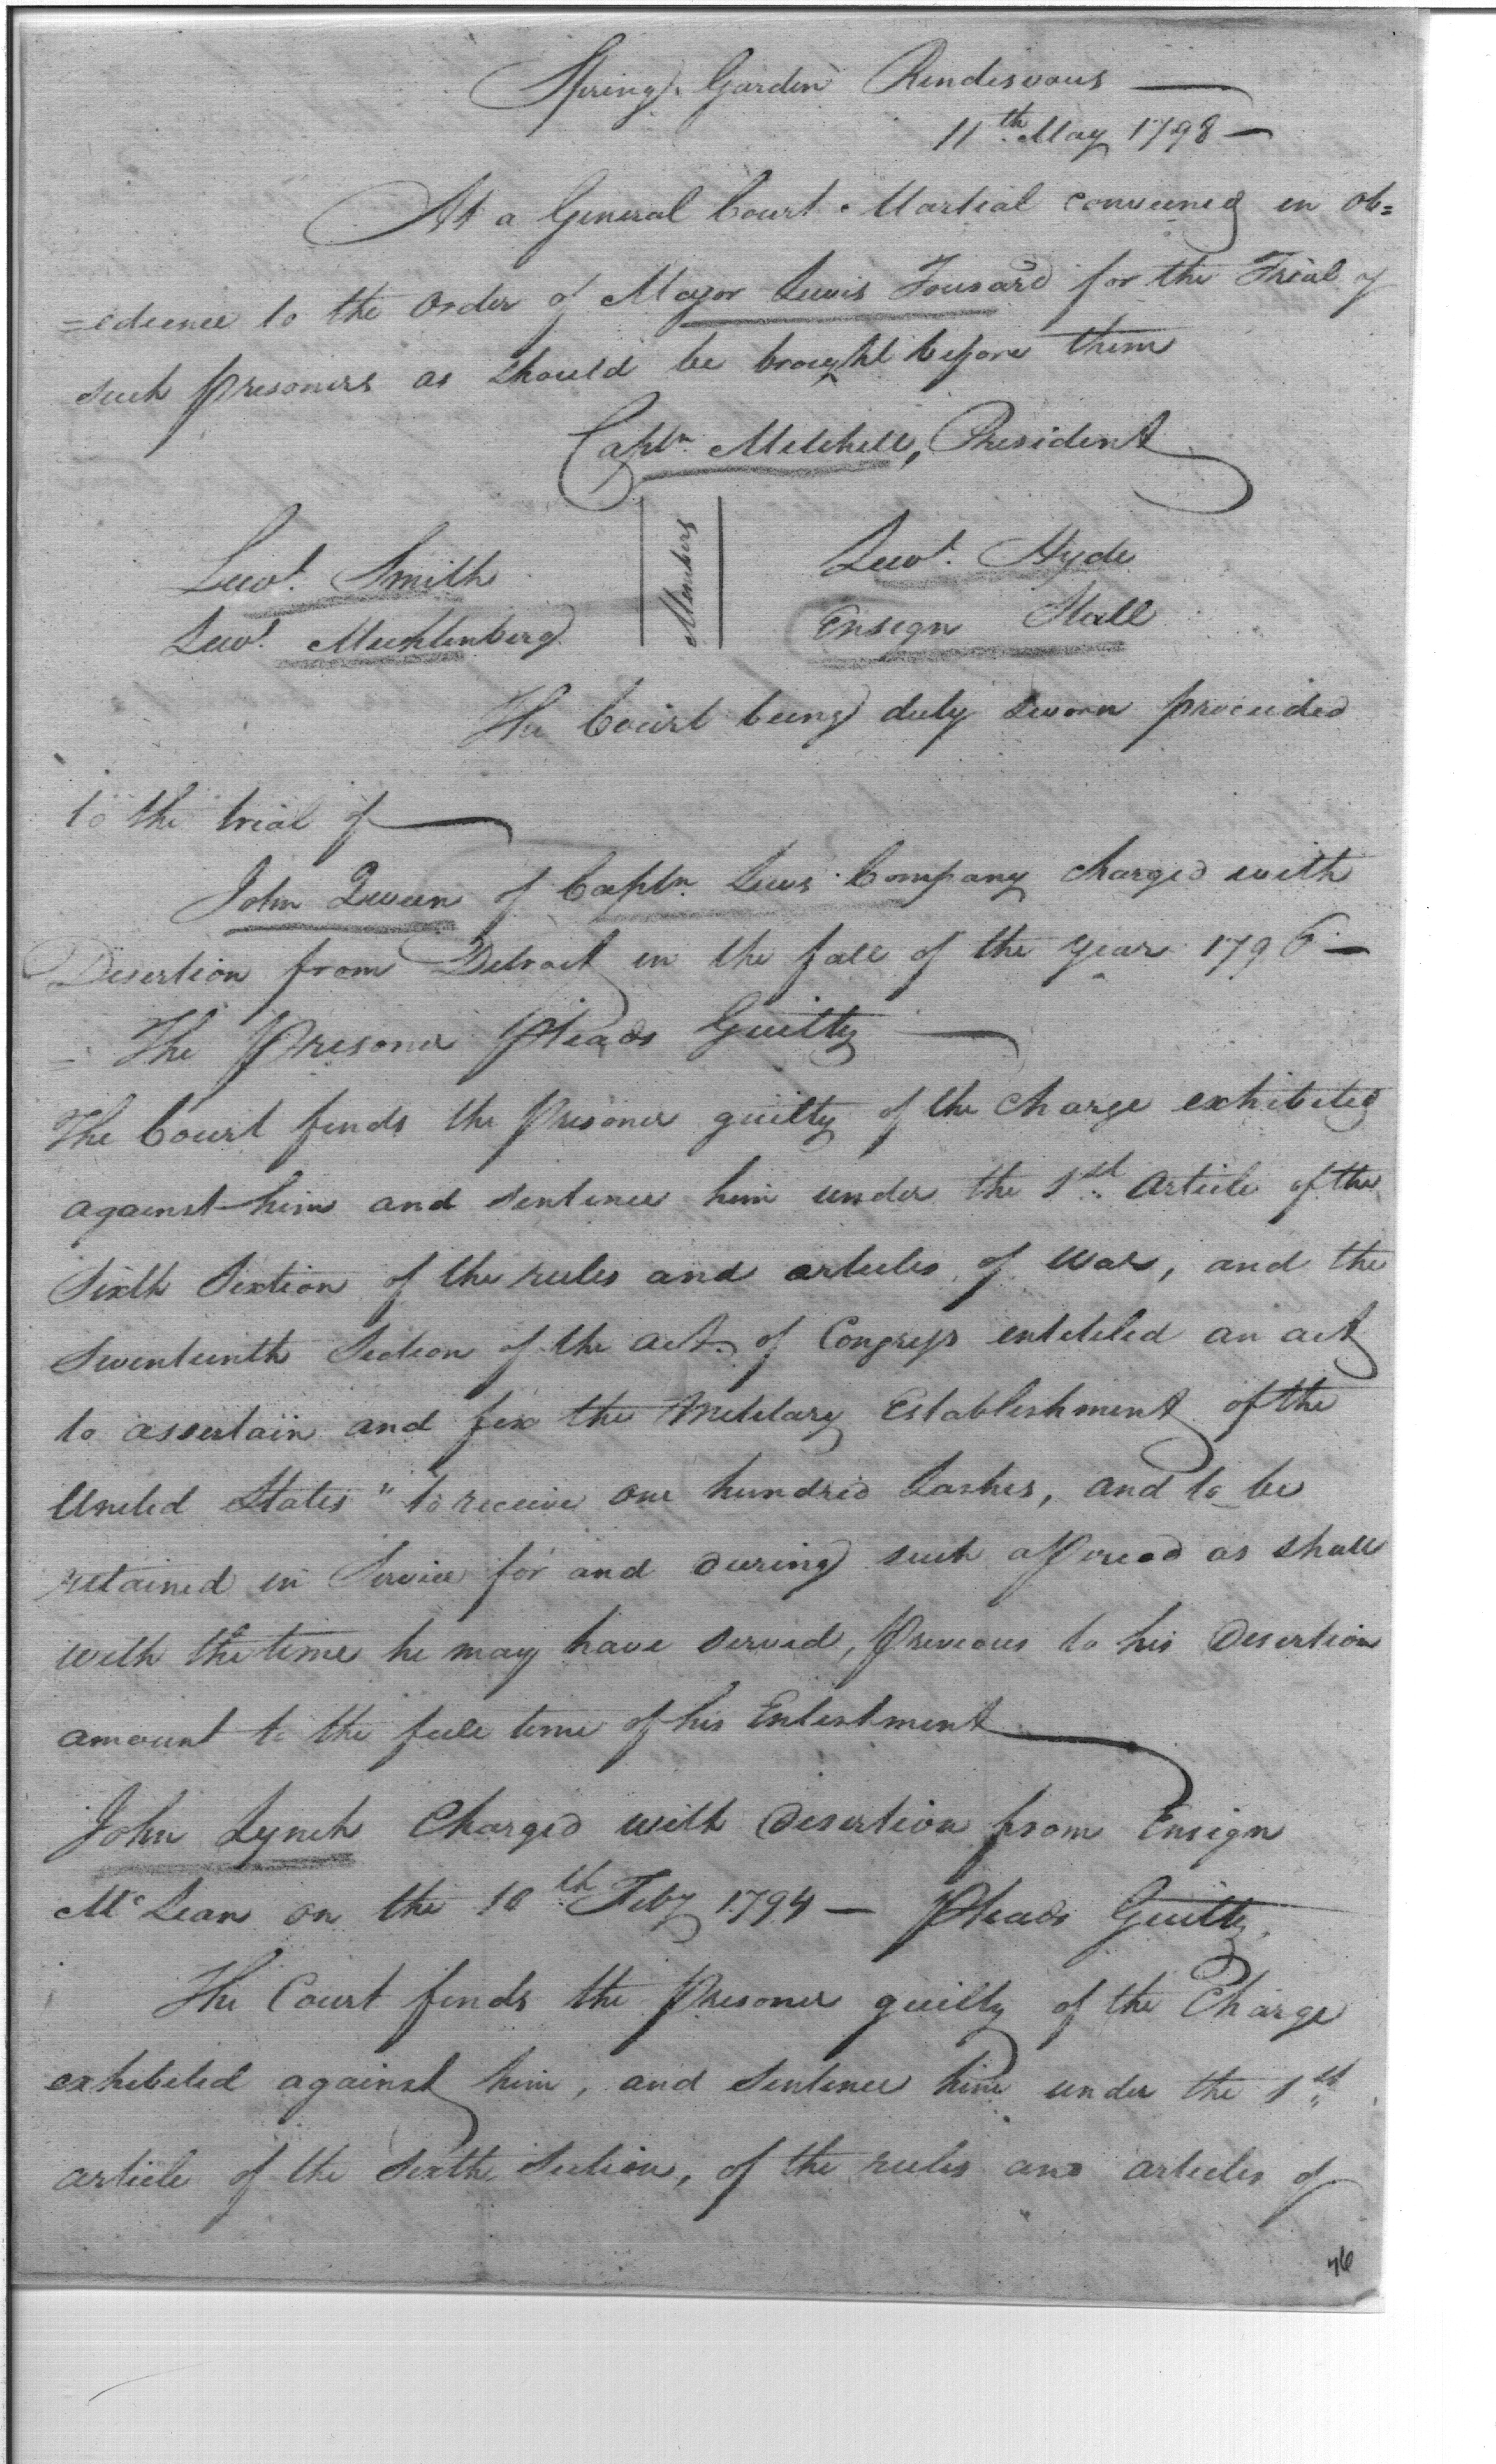 Spring Garden Rendesvous —
11th May 1798 —
At a General Court Martial convened in ob=
=edience to the Order of Major Lewis Tousard for the Trial of
such prisoners as should be brought before them
Captn. Mitchell, President
Members
Lieut. Smith
Lieut. Hyde
Lieut. Muhlenberg
Ensign Hall
The Court being duly sworn proceeded
to the trial of —
John Queen of Captn. Lewis Company charged with
Desertion from Detroit in the fall of the year 1796 —
The Prisoner Pleads Guilty —
The Court finds the Prisoner guilty of the charge exhibited
against him and sentence him under the 1st Article of the
Sixth Sextion of the rules and articles of War, and the
Seventeenth Section of the act of Congress entitled an act
to assertain and fix the Military Establishment of the
United States " to receive one hundred Lashes, and to be
retained in Service for and during such a Period as shall
with the time he may have served, Previous to his Desertion
amount to the full time of his Enlistment —
John Lynch Charged with Desertion from Ensign
McLean on the 10th Feby 1794 — Pleads Guilty.
The Court finds the Prisoner guilty of the Charge
exhibited against him, and Sentence him under the 1st
article of the Sixth Section, of the rules and articles of
46